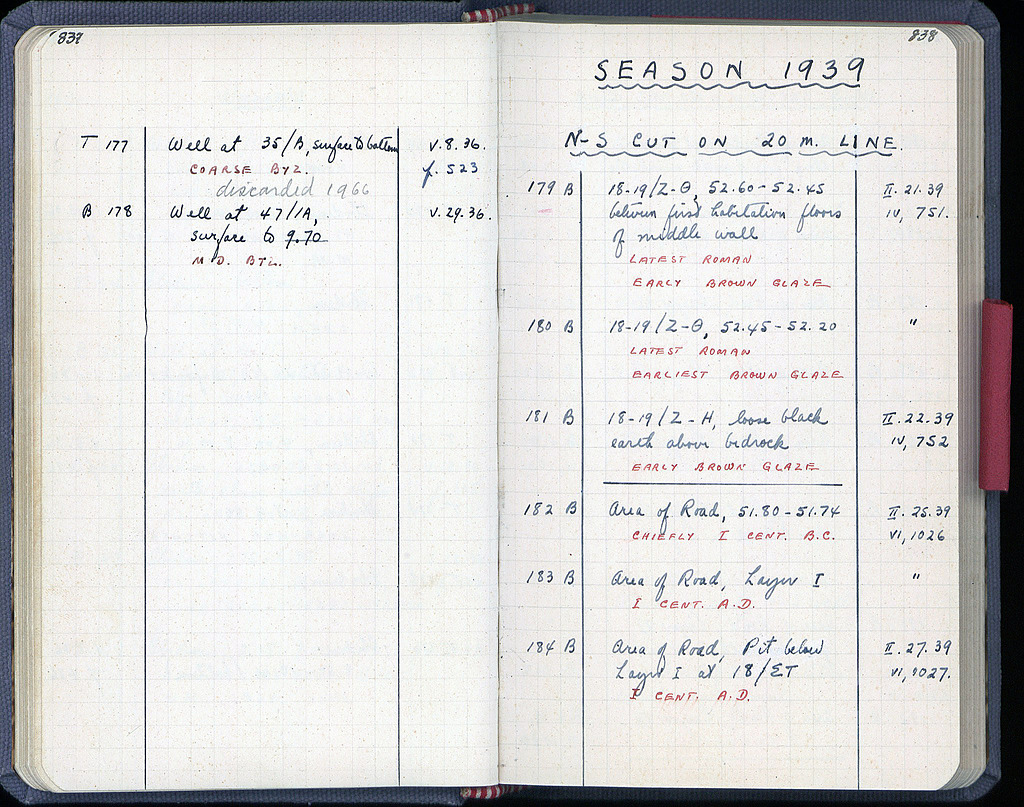 837
T 177 Well at 35/A, surface to bottom V.8.36.
COARSE BYZ. p. 523
discarded 1966
B 178 Well at 47/IA, V.29.36.
surface to 9.70
M D. BTL.
838
SEASON 1939
N-S CUT ON 20 M. LINE.
179 B 18-19/Z-Θ, 52.60-52.45 II.21.39
between first habitation floors IV, 751.
of middle wall
LATEST ROMAN
EARLY BROWN GLAZE
180 B 18-19/Z-Θ, 52.45-52.20 "
LATEST ROMAN
EARLIEST BROWN GLAZE
181 B 18-19/Z-H, loose black II.22.39
earth above bedrock IV, 752
EARLY BROWN GLAZE
182 B Area of Road, 51.80-51.74 II.25.39
CHIEFLY I CENT. B.C. VI, 1026
183 B Area of Road, Layer I "
I CENT. A.D.
184 B Area of Road, Pit below II.27.39
Layer I at 18/ΣΤ VI, 1027.
I CENT. A.D.